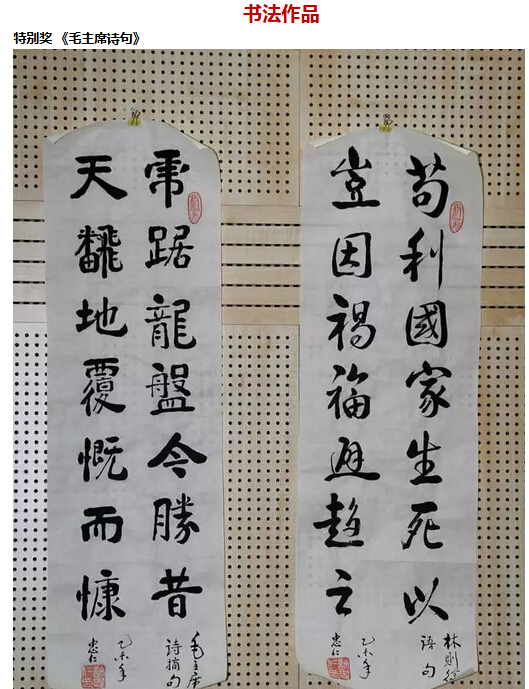 书法作品
特别奖 《毛主席诗句》
虎踞龍盤今勝昔
天飜地覆慨而慷
毛主席
詩摘句
乙未年
忠仁
苟利國家生死以
豈因禍福避趨之
林則徐
語句
乙未年
忠仁